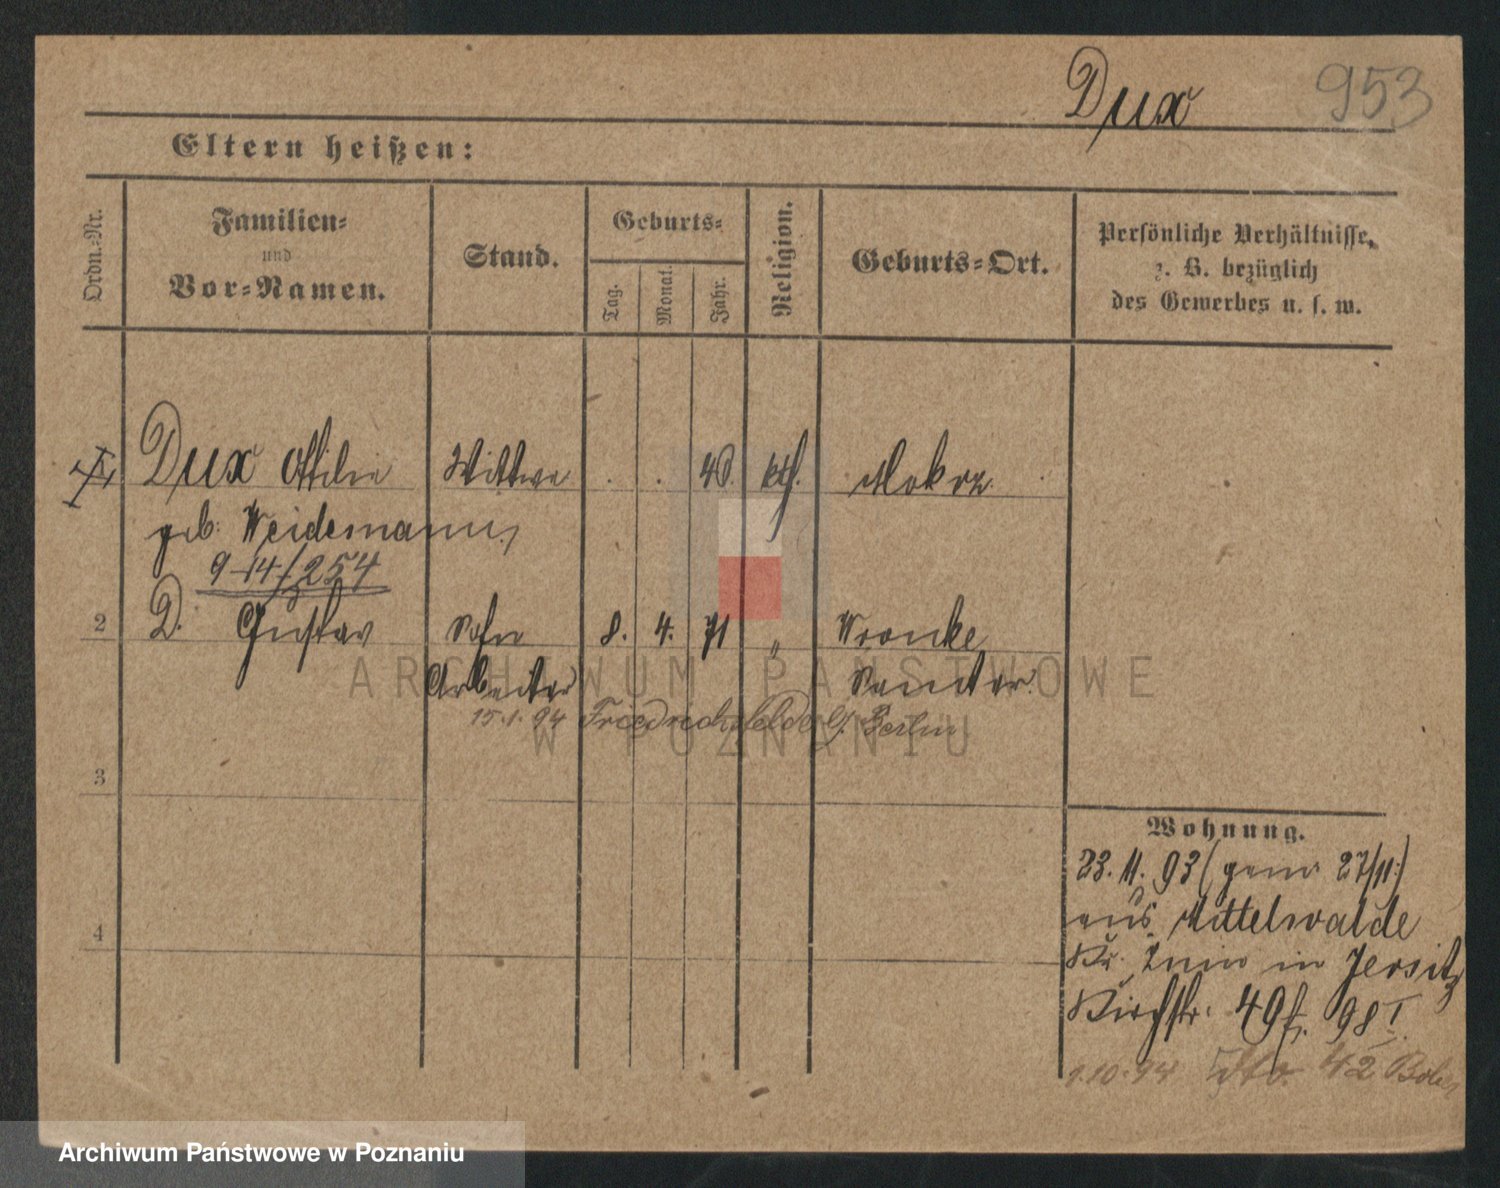 Dux 953
Eltern heißen:
Ordn.-Nr.
Familien-
und
Vor-Namen.
Stand.
Geburts-
Tag.
Monat.
Jahr.
Religion.
Geburts-Ort.
Persönliche Verhältnisse,
z. B. bezüglich
des Gewerbes u. s. w.
Dux Ottilie Wittwe . . 40. kth. Mokrz.
geb. Weidemann,
9-14/254
2 D. Gustav Sohn 8. 4. 71 " Wronke
Arbeiter Samter.
15.1.94 Friedrichsfelde b/ Berlin
3
4
Wohnung.
23. 11. 93 (gem 27/11.)
aus Mittelwalde
Kr. Znin in Jersitz
Kirchstr. 49 98 I.
1.10.94 dto 42
ARCHIWUM PAŃSTWOWE
W POZNANIU
Archiwum Państwowe w Poznaniu